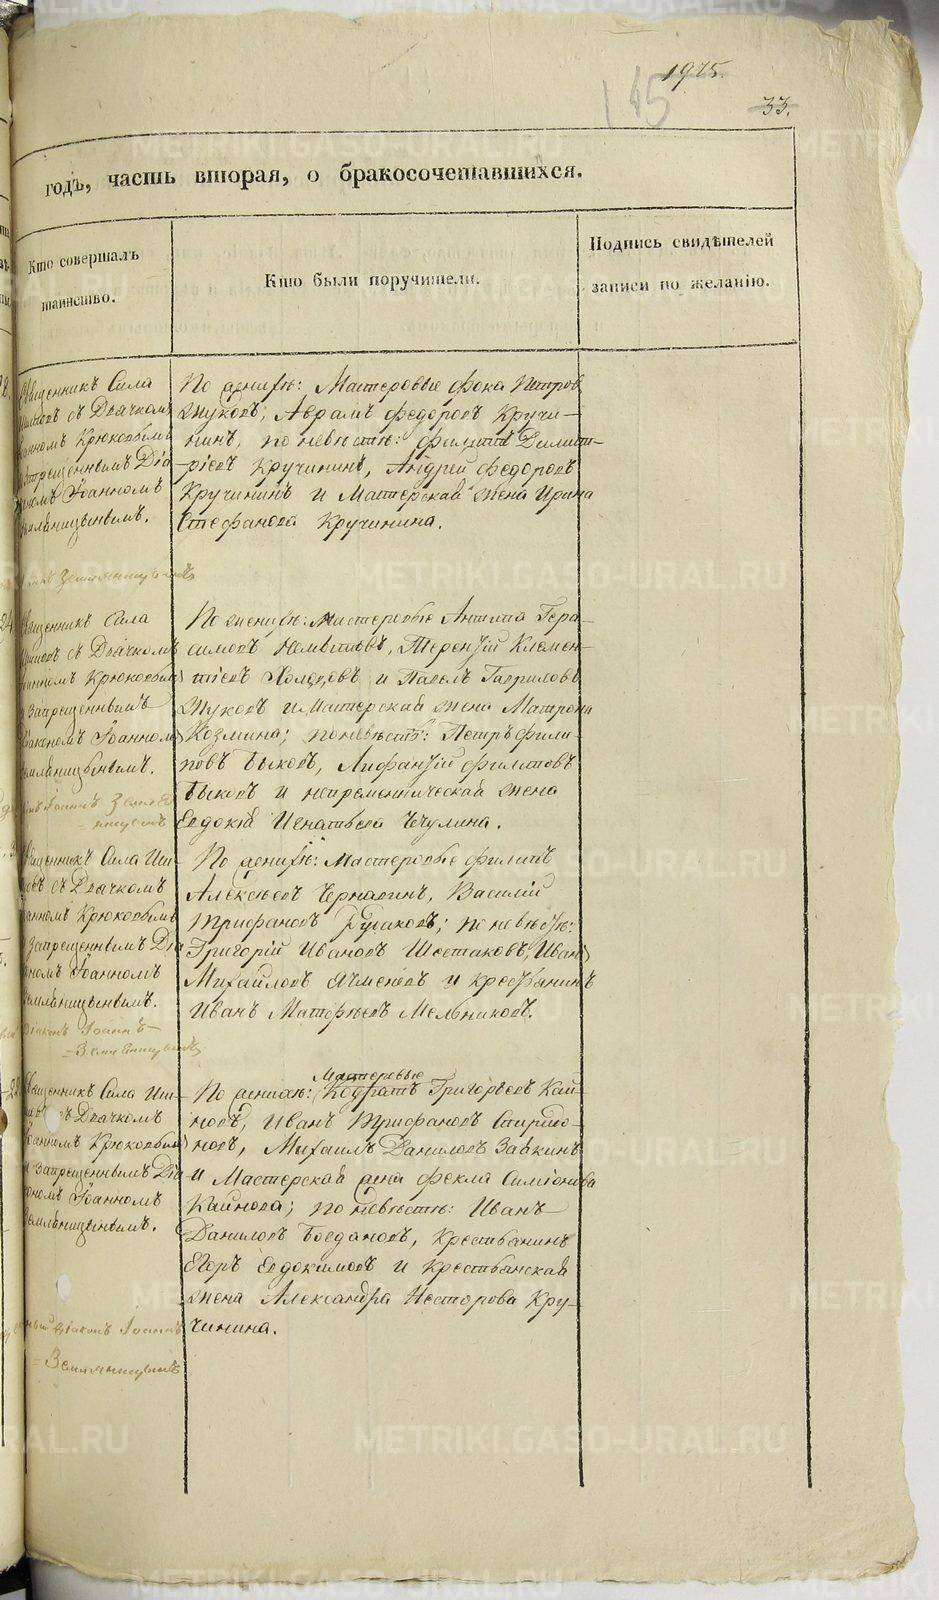 1925.
115
33.
годъ, часть вторая, о бракосочетавшихся.
Кто совершалъ
таинство.
Кто были поручители.
Подпись свидѣтелей
записи по желанію.
Священникъ Сила
съ Дьячкомъ
Іоанномъ Крюковымъ
и Запрещеннымъ Діа
кономъ Іоанномъ
Землянициннымъ.
По женихѣ: Мастеровые Фока Петров
Жуковъ, Аврамъ Федоровъ Кручи-
нинъ, по невѣстѣ: Филиппъ Димит-
ріевъ Кручининъ, Андрей Федоровъ
Кручининъ и Мастерская жена Ирина
Стефанова Кручинина.
Священникъ Сила
съ Дьячкомъ
Іоанномъ Крюковым
и Запрещеннымъ
Діакономъ Іоанномъ
По женихѣ: мастеровые Антипа Гера-
симовъ Терентій Клемен-
тіевъ и Павелъ Гавриловъ
Жуковъ и Мастерская жена Матрона
Козмина; по невѣстѣ: Петръ Фили-
повъ Быковъ, Филиповъ
Быковъ и непременническая жена
Евдокія Игнатьева Чечулина.
Священникъ Сила
съ Дьячкомъ
Іоанномъ Крюковымъ
и Запрещеннымъ Діа
кономъ Іоанномъ
По женихѣ: Мастеровые Филипъ
Алексѣевъ Василій
Трифановъ по невѣстѣ:
Григорій Ивановъ Шестаковъ, Иванъ
Михайловъ Ячменевъ и крестьянинъ
Иванъ Матфѣевъ Мельниковъ.
Діаконъ Іоаннъ
Священникъ Сила
съ Дьячкомъ
Іоанномъ Крюковым
и Запрещеннымъ Діа
кономъ Іоанномъ
Мастеровые
По женихѣ: Кодратъ Григорьевъ Кай-
новъ, Иванъ Трифановъ Спиридо-
новъ, Михаилъ Даниловъ Завкинъ
и Мастерская жена Фекла Симіонова
Кайнова; по невѣстѣ: Иванъ
Даниловъ Богдановъ, Крестьянинъ
Егоръ Евдокимовъ и Крестьянская
жена Александра Несторова Кру-
чинина.
Діаконъ Іоаннъ
METRIKI.GASO-URAL.RU